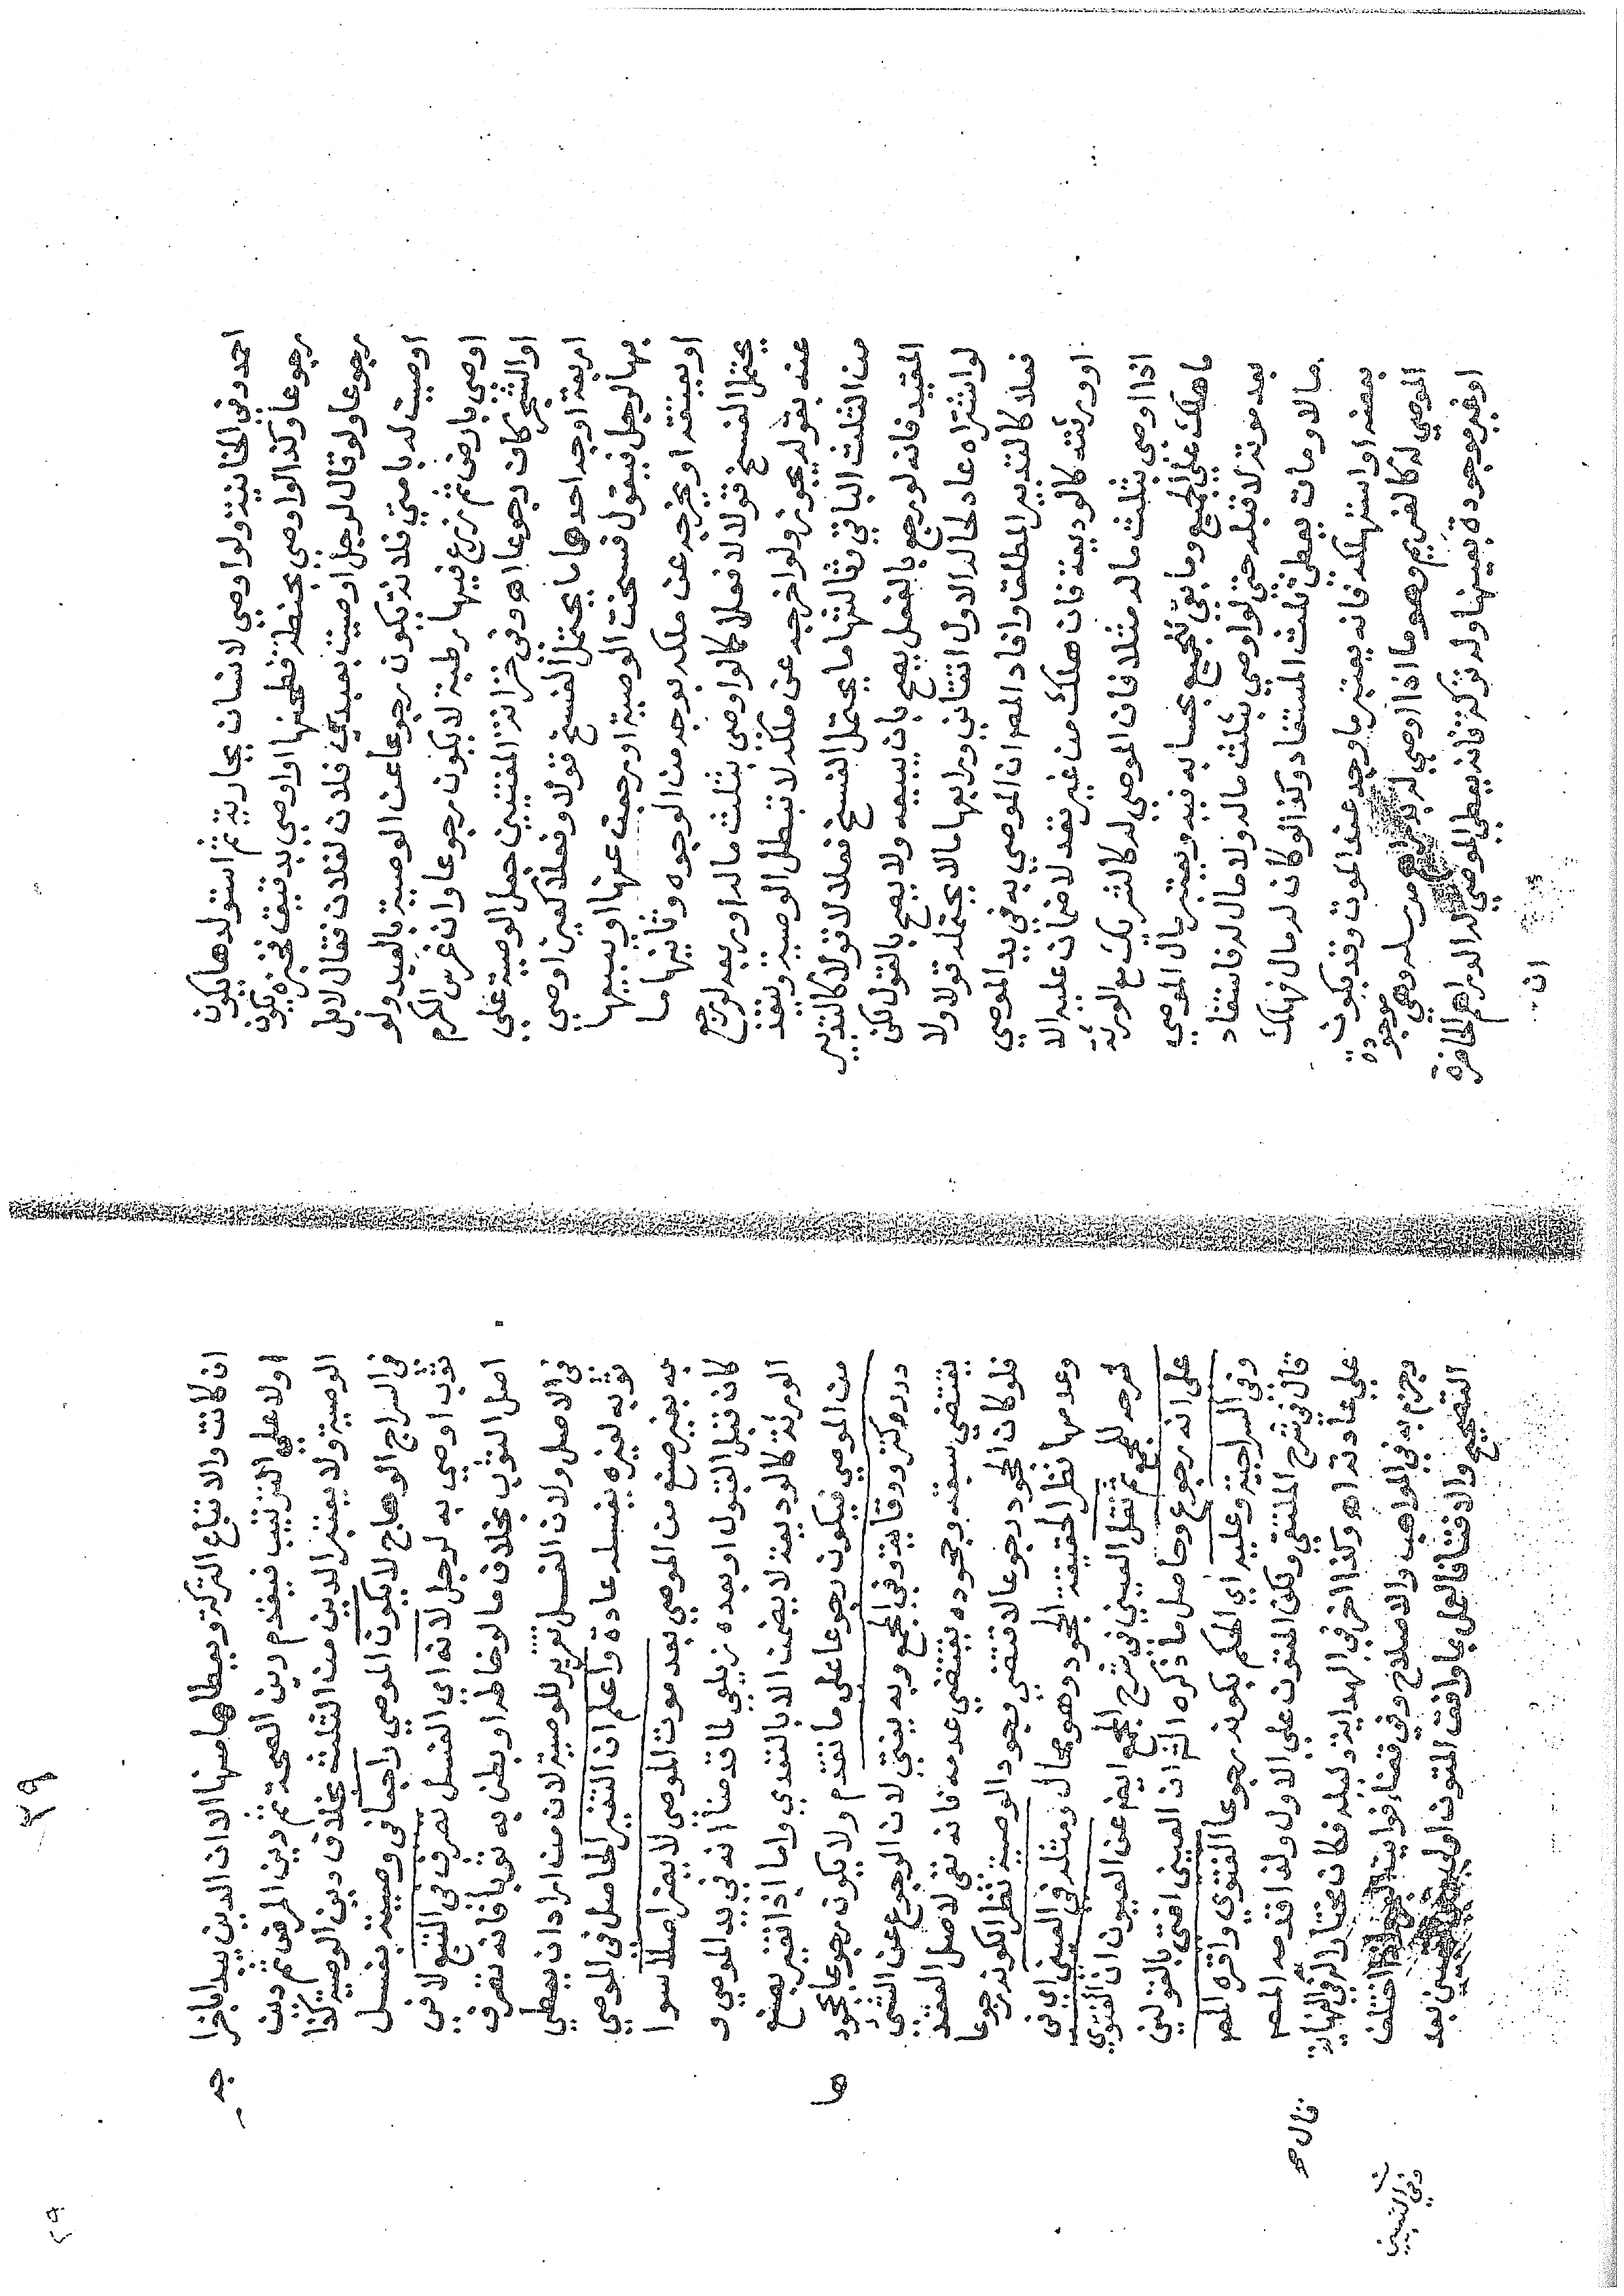 احد وفي الخانية ولو اوصي لانسان بجارية ثم استولدها يكون
رجوعا وكذا لو اوصي بحنطة فطحنها او اوصي بدقيق فخبزه يكون
رجوعا ولو قال لرجل اوصيت بعبدي فلان لفلان فقال لا بل
اوصيت له بامتي فلانة يكون رجوعا عن الوصية بالعبد ولو
اوصي بارض ثم زرع فيها رطبة لا يكون رجوعا وان غرس الكرم
او الشجر كان رجوعا اه وفي خزانة المفتيين حمل الوصية علي
اربعة اوجه احدها ما يحتمل الفسخ قولا وفعلا كعين اوصي
بها لرجل فيقول فسخت الوصية او رجعت عنها او يبيعها
او يعتقه او يخرجه عن ملكه بوجه من الوجوه وثانيها ما
يحتمل الفسخ قولا لا فعلا كما لو اوصي بثلث ماله او ربعه لو رجع
عنه بقوله يجوز ولو اخرجه عن ملكه لا تبطل الوصية وينفذ
من الثلث الباقي وثالثها ما يحتمل الفسخ فعلا لا قولا كالتدبير
المقيد فانه لو رجع بالفعل يصح بان يبيعه ولا يصح بالقول لكن
لو اشتراه عاد لحاله الاول الثاني ورابعها ما لا يحتمله قولا ولا
فعلا كالتدبير المطلق وافاد المص ان الموصي به في يد الموصي
او ورثته كالوديعة فان هلك من غير تعد لا ضمان عليه الا
اذا اوصي بثلث ماله مثلا فان الموصي له كالشريك مع الورثة
ما هلك علي الجميع وما بقي للجميع بحسابه فيه ويعتبر مال الموصي
بعد موته لا قبله حتي لو اوصي بثلث ماله ولا مال له فاستفاد
مالا ومات يعطي ثلث المستفاد وكذا لو كان له مال فهلك
بعضه او استهلكه فانه يعتبر ما وجد عند الموت وقد يكون
الموصي له كالغريم وهو ما اذا اوصي له بدراهم مرسلة وهي موجودة
او غير موجودة بعينها وله تركة فانه يعطي الموصي له الدراهم الحاضرة
ان
ان كانت والا تباع التركة ويعطاها منها الا ان الدين يبدا باخر
جه
اولا علي الترتيب فيقدم دين الصحة ثم دين المرض ثم دين
الوصية ولا يعتبر الدين من الثلث بخلاف دين الوصية كذا
في السراج الوهاج لا يكون الموصي راجعا في وصيته بغسل
ثوب اوصي به لرجل لانه اي الغسل تصرف في التبع لا في
اصل الثوب بخلاف ما لو خاطه او بطن به ثوبا فانه تصرف
في الاصل ولان الغسل تقرير للوصية لان من اراد ان يعطي
ثوبه لغيره يغسله عادة واعلم ان التغير الحاصل في الموصي
به بغير صنع من الموصي بعد موت الموصي لا يضر اصلا سوا
كان قبل القبول او بعده زيلعي لما قدمنا انه في يد الموصي و
الورثة كالوديعة لا يضمن الا بالتعدي واما اذا تغير بصنع
من الموصي فيكون رجوعا علي ما تقدم ولا يكون رجوعا بجحود
ها
درر وكنز ووقاية وفي المجمع وبه يفتي لان الرجوع عن الشي
يقتضي سبقه وجحوده يقتضي عدمه فانه نفي لاصل العقد
فلو كان الجحود رجوعا لاقتضي وجود الوصية نظرا لكونه رجوعا
وعدمها نظر الحقيقة الجحود وهو محال ومثله في العيني اي في
شرحه للمجمع ثم نقل العيني في شرح المجمع ايضا عن العيون ان الفتوي
علي انه رجوع وحاصل ما ذكره الش ان العيني افتي بالقولين
وفي السراجية وعليه اي الحكم بكونه رجوعا الفتوي واقره المص
قال في شرح الملتقي ولكن المتون علي الاول ولذا قدمه المص
علي عادته اه وكذا اخر في الهداية دليله فكان مختارا له في النهاية
قال صح
وجزم به في المواهب والاصلاح وفي قضاء فوائت البحر اذا اختلف
وفي التبيين
التصحيح والافتا فالعمل بما وافق المتون اولي بعد
٣٩